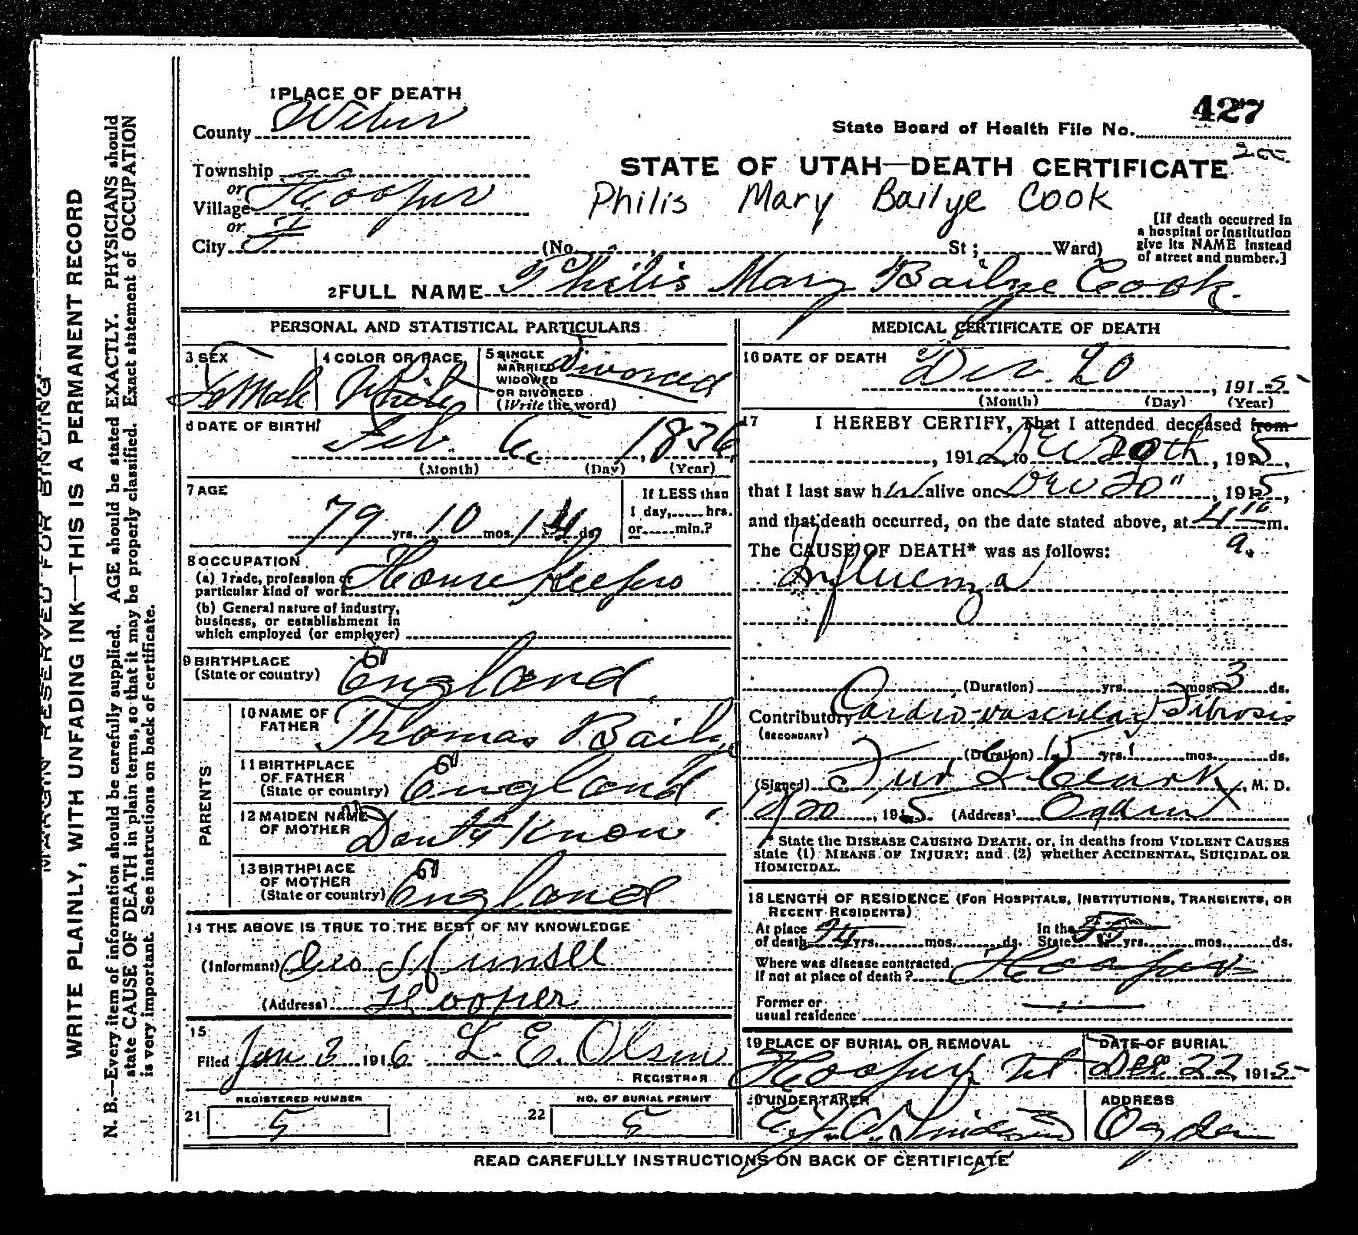 MARGIN RESERVED FOR BINDING
WRITE PLAINLY, WITH UNFADING INK—THIS IS A PERMANENT RECORD
N. B.—Every item of information should be carefully supplied. AGE should be stated EXACTLY. PHYSICIANS should
state CAUSE OF DEATH in plain terms, so that it may be properly classified. Exact statement of OCCUPATION
is very important. See instructions on back of certificate.
1 PLACE OF DEATH
County Weber
427
State Board of Health File No.
STATE OF UTAH—DEATH CERTIFICATE
Township
or
Village Hooper
or
City
Philis Mary Bailye Cook
(No. St; Ward)
[If death occurred in
a hospital or institution
give its NAME instead
of street and number.]
2 FULL NAME Philis Mary Bailye Cook
PERSONAL AND STATISTICAL PARTICULARS
3 SEX
FeMale
4 COLOR OR RACE
White
5 SINGLE
MARRIED
WIDOWED
OR DIVORCED
(Write the word)
Divorced
6 DATE OF BIRTH
Feb. 6, 1836
(Month) (Day) (Year)
7 AGE
79 yrs. 10 mos. 14 ds
If LESS than
1 day, hrs.
or min.?
8 OCCUPATION
(a) Trade, profession or
particular kind of work
House Keeper
(b) General nature of industry,
business, or establishment in
which employed (or employer)
9 BIRTHPLACE
(State or country)
England
PARENTS
10 NAME OF
FATHER
Thomas Baily
11 BIRTHPLACE
OF FATHER
(State or country)
England
12 MAIDEN NAME
OF MOTHER
Don't Know
13 BIRTHPLACE
OF MOTHER
(State or country)
England
14 THE ABOVE IS TRUE TO THE BEST OF MY KNOWLEDGE
(Informant) Geo
(Address) Hooper
15
Filed Jan 3 1916 L. E. Olsen
REGISTRAR
REGISTERED NUMBER
21 5
NO. OF BURIAL PERMIT
22 5
MEDICAL CERTIFICATE OF DEATH
16 DATE OF DEATH
Dec. 20, 1915
(Month) (Day) (Year)
17 I HEREBY CERTIFY, That I attended deceased from
, 191 to Dec 20th, 1915,
that I last saw her alive on Dec 20", 1915,
and that death occurred, on the date stated above, at 4 10 m.
a.
The CAUSE OF DEATH* was as follows:
Influenza
(Duration) yrs. mos. 3 ds.
Contributory Cardio-vascular Fibrosis
(SECONDARY)
(Duration) 15 yrs. mos. ds.
(Signed) Fred L Clark, M. D.
12/20, 1915 (Address) Ogden
* State the DISEASE CAUSING DEATH, or, in deaths from VIOLENT CAUSES
state (1) MEANS OF INJURY; and (2) whether ACCIDENTAL, SUICIDAL OR
HOMICIDAL.
18 LENGTH OF RESIDENCE (FOR HOSPITALS, INSTITUTIONS, TRANSIENTS, OR
RECENT RESIDENTS)
At place
of death yrs. mos. ds.
In the
State yrs. mos. ds.
Where was disease contracted,
if not at place of death? Hooper
Former or
usual residence
19 PLACE OF BURIAL OR REMOVAL
Hooper Ut
DATE OF BURIAL
Dec. 22, 1915
20 UNDERTAKER
ADDRESS
Ogden
READ CAREFULLY INSTRUCTIONS ON BACK OF CERTIFICATE